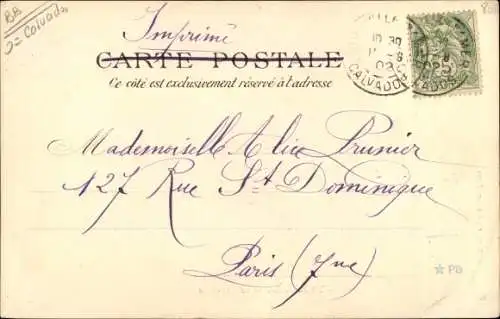 BB
Imprimé
CARTE POSTALE
Ce côté est exclusivement réservé à l'adresse
10 30
03
CALVADOS
5
Mademoiselle Alice Prunier
127 Rue St Dominique
Paris (7me)
* PB